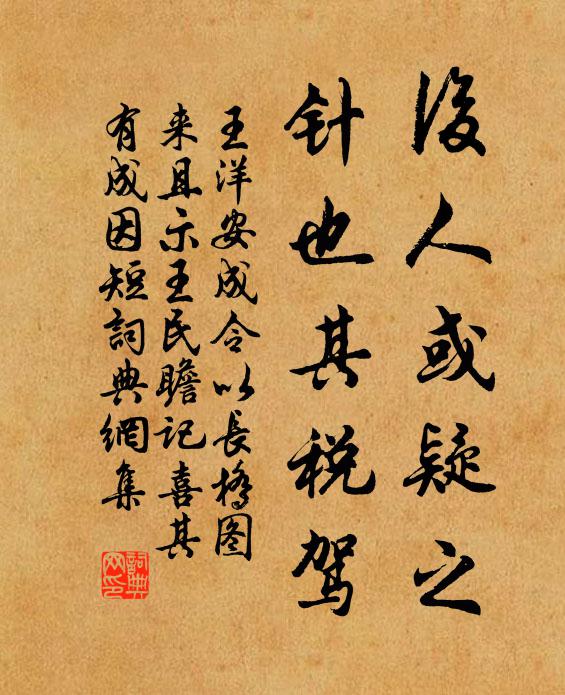 後人或疑之
针也其税驾
王洋安成令以長橋图
来且示王民瞻记喜其
有成因短詞典網集
詞典网印